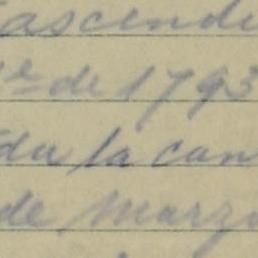 ascendi
re de 1793
da la can
de Marzo